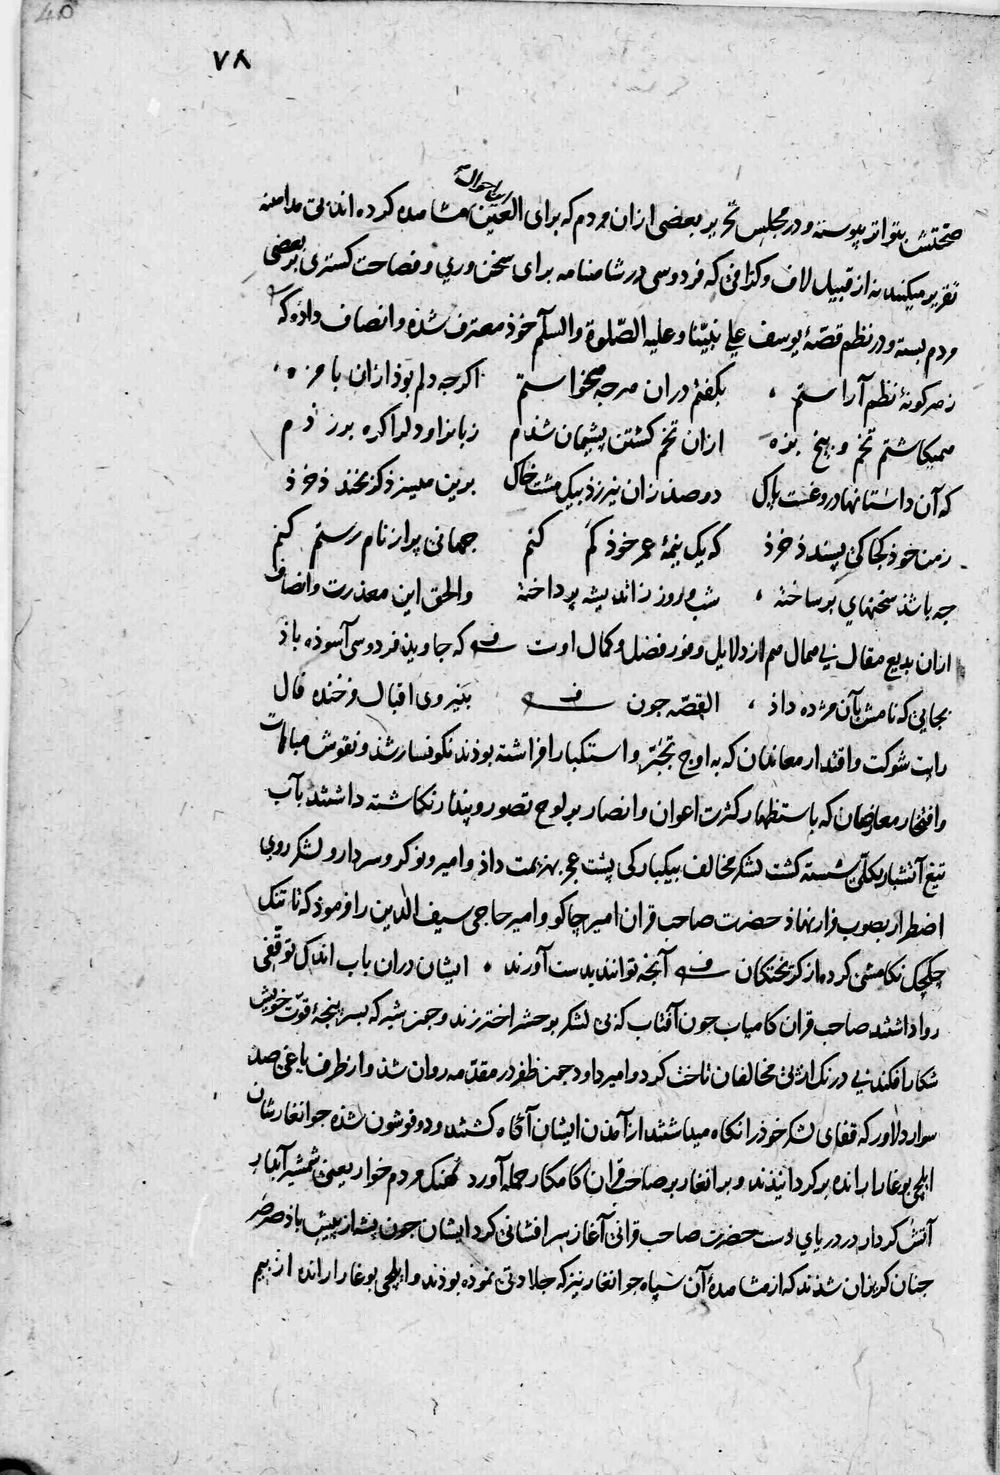 ۷۸
صحتش بتواتر پیوسته و در مجلس تحریر بعضی ازان مردم که برای العین این احوال مشاهده کرده اند بی مداهنه
تقریر میکنند نه از قبیل لاف و گزافی که فردوسی در شاهنامه برای سخن وری و فصاحت گستری بر بعضی
مردم بسته و در نظم قصّهٔ یوسف علی نبیّنا و علیه الصّلوة والسلّم خوذ معترف شذه و انصاف داده که
زهر کونهٔ نظم آراستم ، بکفتم دران هرجه میخواستم اکرجه دلم بوذ ازان با مزه ،
همیکاشتم تخم و بیخ بزه ازان تخم کشتن پشیمان شذم زبانرا و دلرا کره برزدم
که آن داستانها دروغست پاک دو صذ زان نیرزذ بیک مشت خاک برین میسزذ کز بخندذ خرذ
زمن خوذ کجا کی پسندذ خرذ که یک نیمهٔ عمر خوذ کم کنم جهانی پر از نام رستم کنم
جه باشذ سخنهای بر ساخته ، شب و روز زاندیشه پرداخته والحق این معذرت و انصاف
ازان بدیع مقال بی همال هم از دلایل وفور فضل و کمال اوست که جاوید فردوسی آسوذه باذ
بجایی که نامش بآن مژده داذ ، القصّه جون بنیروی اقبال فرخنده فال
رایت شوکت و اقتدار معاندان که به اوج تجبّر و استکبار افراشته بوذند نکونسار شذ و نقوش مباهات
و افتخار معارضان که باستظهار کثرت اعوان و انصار بر لوح تصور و پندار نکاشته داشتند بآب
تیغ آتشبار بکلّی شسته کشت لشکر مخالف بیکبارکی پشت عجز بهزیمت داذ و امیر و نوکر و سردار و لشکر روی
اضطرار بصوب فرار نهاذ حضرت صاحب قران امیر چاکو و امیر حاجی سیف الدین را فرموذ که تا تنک
چکچک تکامشی کرده از کریختکان آنچه توانند بدست آورند . ایشان دران باب اندک توقّفی
روا داشتند صاحب قران کامیاب جون آفتاب که بی لشکر بر حشر اختر زند و جون شیر که بسر پنجهٔ قوّت خویش
شکار افکند بی درنک از پی مخالفان تاخت کرد و امیر داود جون ظفر در مقدّمه روان شذ و از طرف یاغی صد
سوار دلاور که قفای لشکر خوذ را نکاه میداشتند از آمدن ایشان آگاه کشتند و دو قوشون شذه جوانغار شان
ایلچی بوغا را رانده بر کردانیذند و برانغار بر صاحب قران کامکار حمله آورد نهنک مردم خوار یعنی شمشیر آبدار
آتش کردار در دریای دست حضرت صاحب قرانی آغاز سر افشانی کرد ایشان جون پشه از پیش باذ صرصر
جنان کریزان شذند که از مشاهدهٔ آن سپاه جوانغار نیز که جلادتی نموذه بوذند و ایلچی بوغا را رانده از بیم